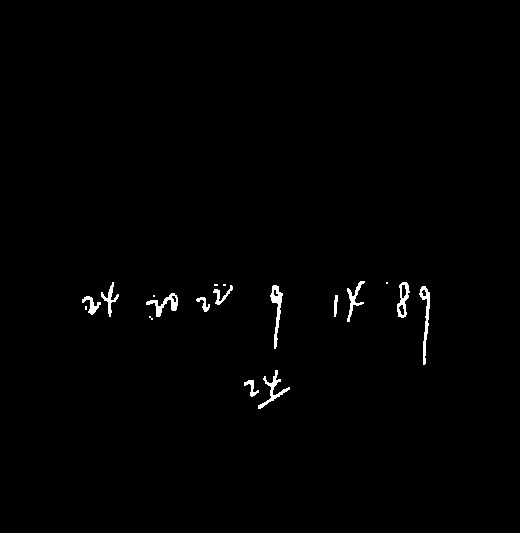 24 20 22 9 14 89
24